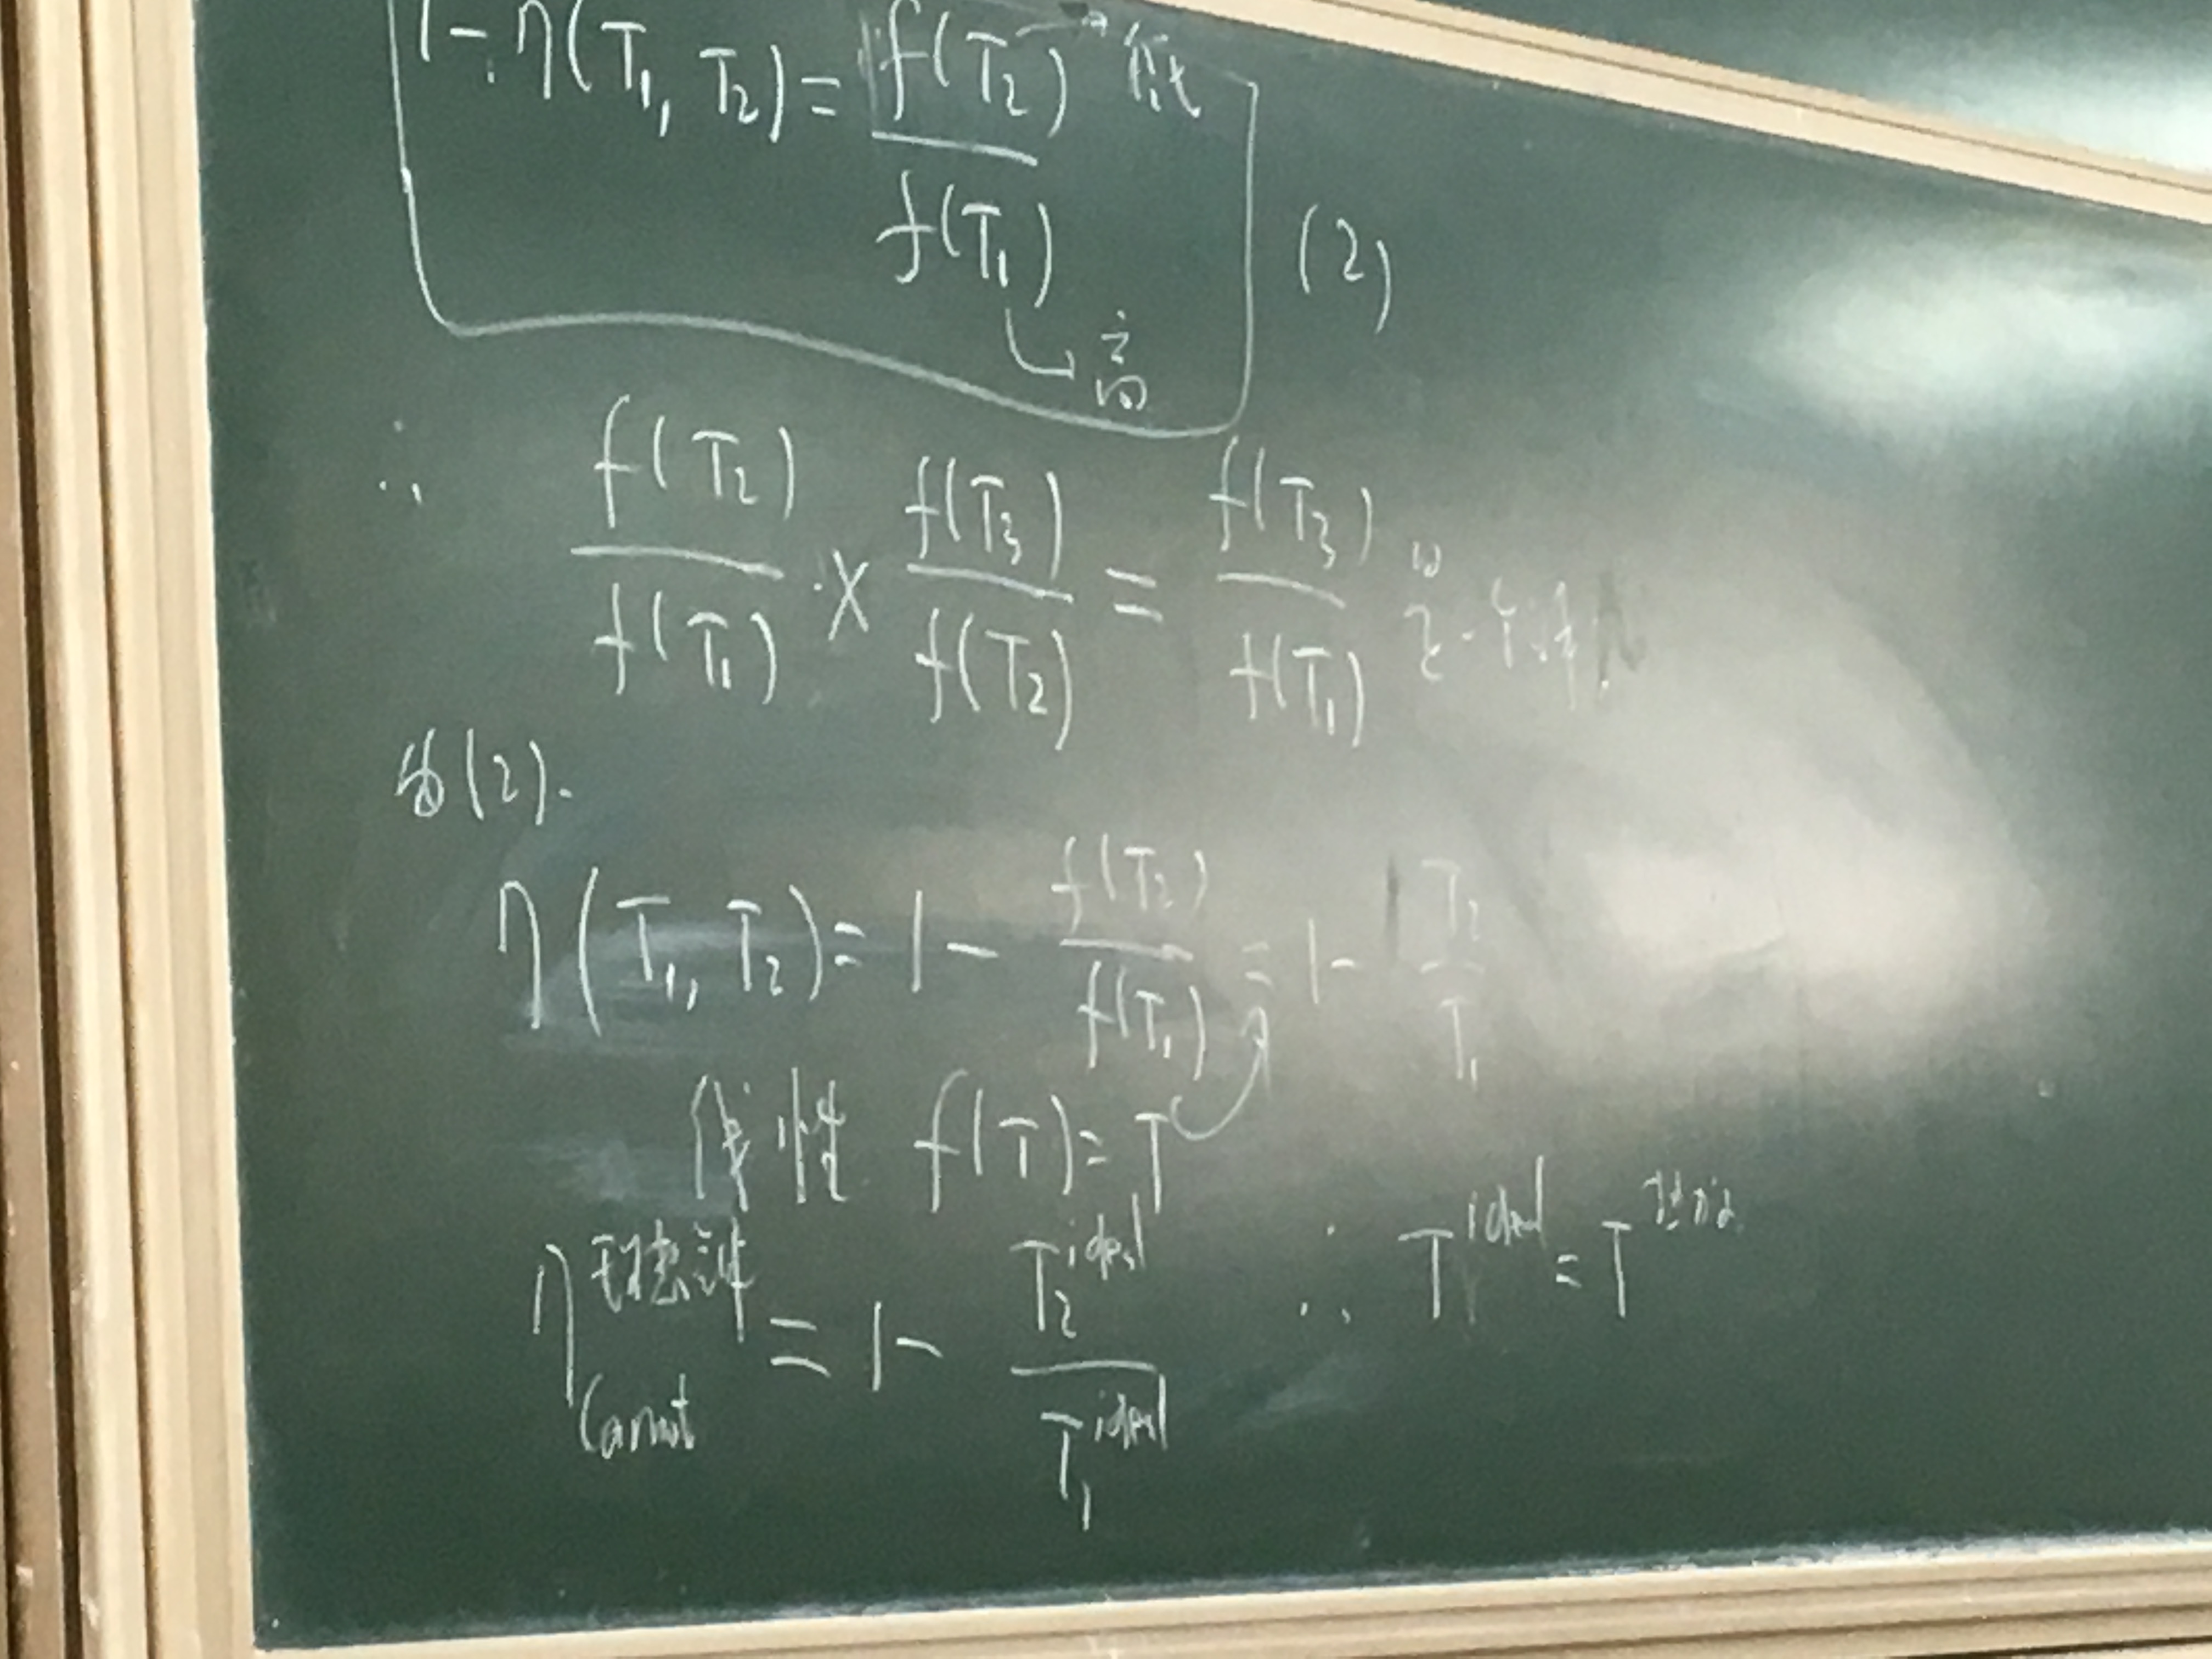 1 - η(T₁, T₂) = f(T₂) / f(T₁) → 低 (2)
→ 高
∴ f(T₂) / f(T₁) × f(T₃) / f(T₂) = f(T₃) / f(T₁)
由(2).
η(T₁, T₂) = 1 - f(T₂) / f(T₁) = 1 - T₂ / T₁
线性 f(T) = T
η Carnot 理想 = 1 - T₂^ideal / T₁^ideal ∴ T^ideal = T